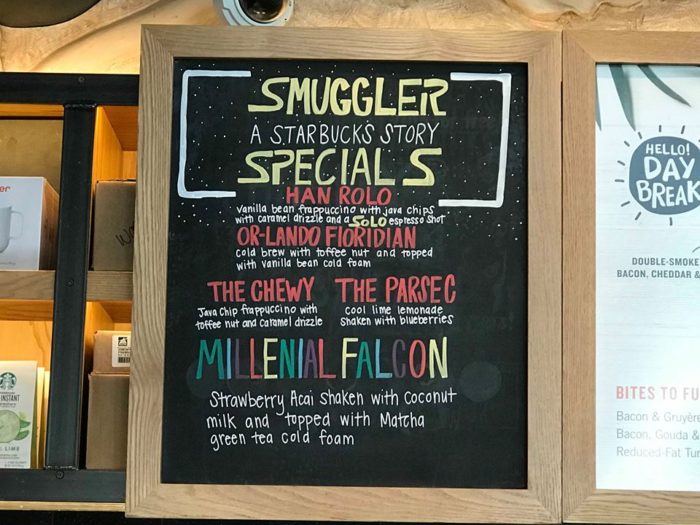 SMUGGLER
A STARBUCKS STORY
SPECIALS
HAN ROLO
Vanilla bean frappuccino with java chips
with caramel drizzle and a SOLO espresso shot
OR-LANDO FlORIDIAN
Cold brew with toffee nut and topped
with vanilla bean cold foam
THE CHEWY
Java Chip frappuccino with
toffee nut and caramel drizzle
THE PARSEC
Cool lime lemonade
shaken with blueberries
MILLENIAL FALCON
Strawberry Acai Shaken with Coconut
milk and topped with Matcha
green tea cold foam
HELLO!
DAY
BREAK
DOUBLE-SMOKE
BACON, CHEDDAR &
BITES TO FU
Bacon & Gruyère
Bacon, Gouda &
Reduced-Fat Tur
er
INSTANT
LIME